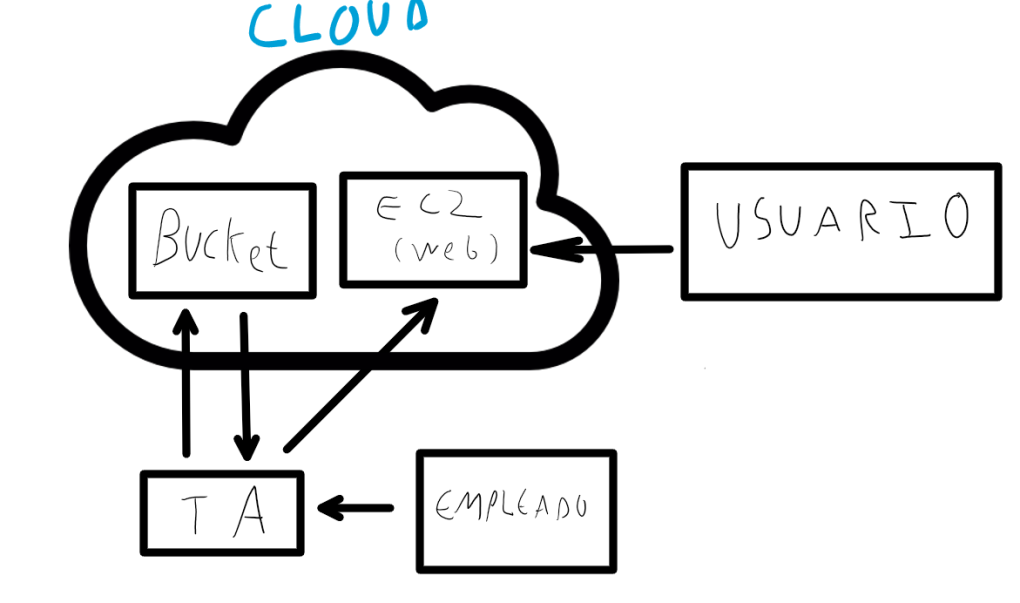 CLOUD
Bucket
EC2
(web)
USUARIO
TA
EMPLEADO